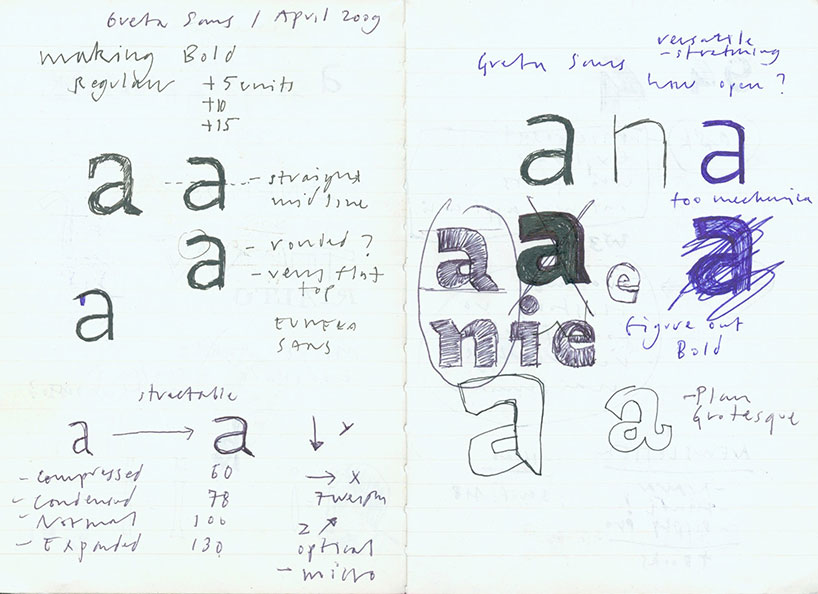 Greta Sans / April 2009
making Bold
Regular +5 units
+10
+15
a a
- straight
mid line
a
- ronded ?
- very flat
top
a
EUREKA
SANS
stretable
a → a
- Compressed 60
- Condensed 78
- Normal 100
- Expanded 130
↓ Y
→ X
7 weights
Z ↗
optical
- micro
Greta Sans
versatile
- stretching
how open ?
a n a
too mechanica
a a e a
n i e
Figure out
Bold
a a
- Plan
Grotesque